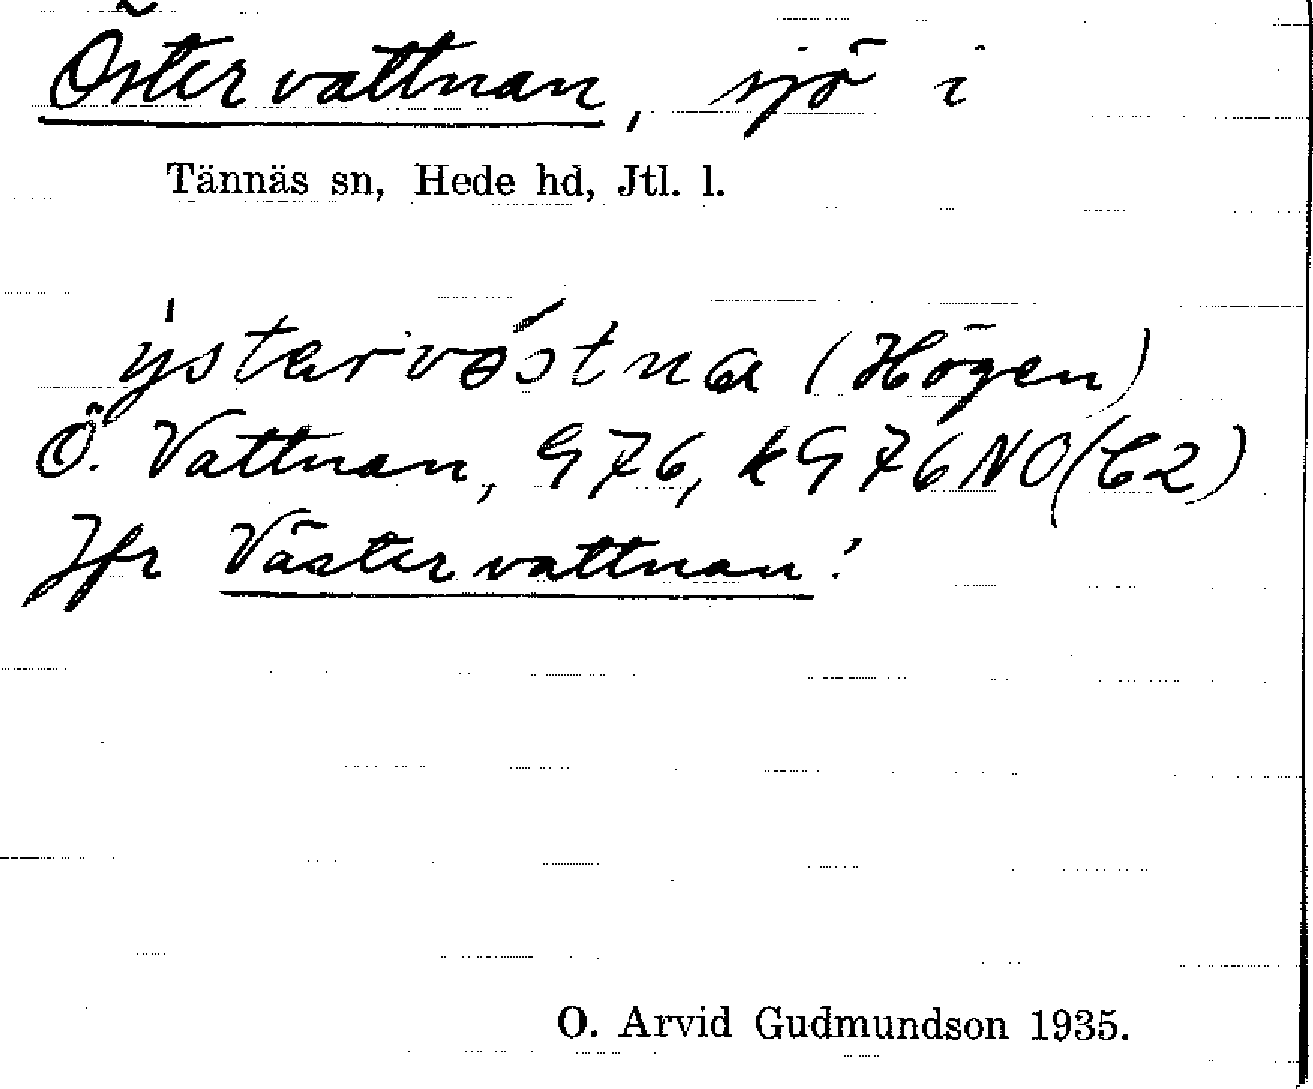 Östervattnan, sjö i
Tännäs sn, Hede hd, Jtl. l.
(Högen)
Ö. Vattnan, G76, kG76NO(C2)
Jfr Västervattnan!
O. Arvid Gudmundson 1935.